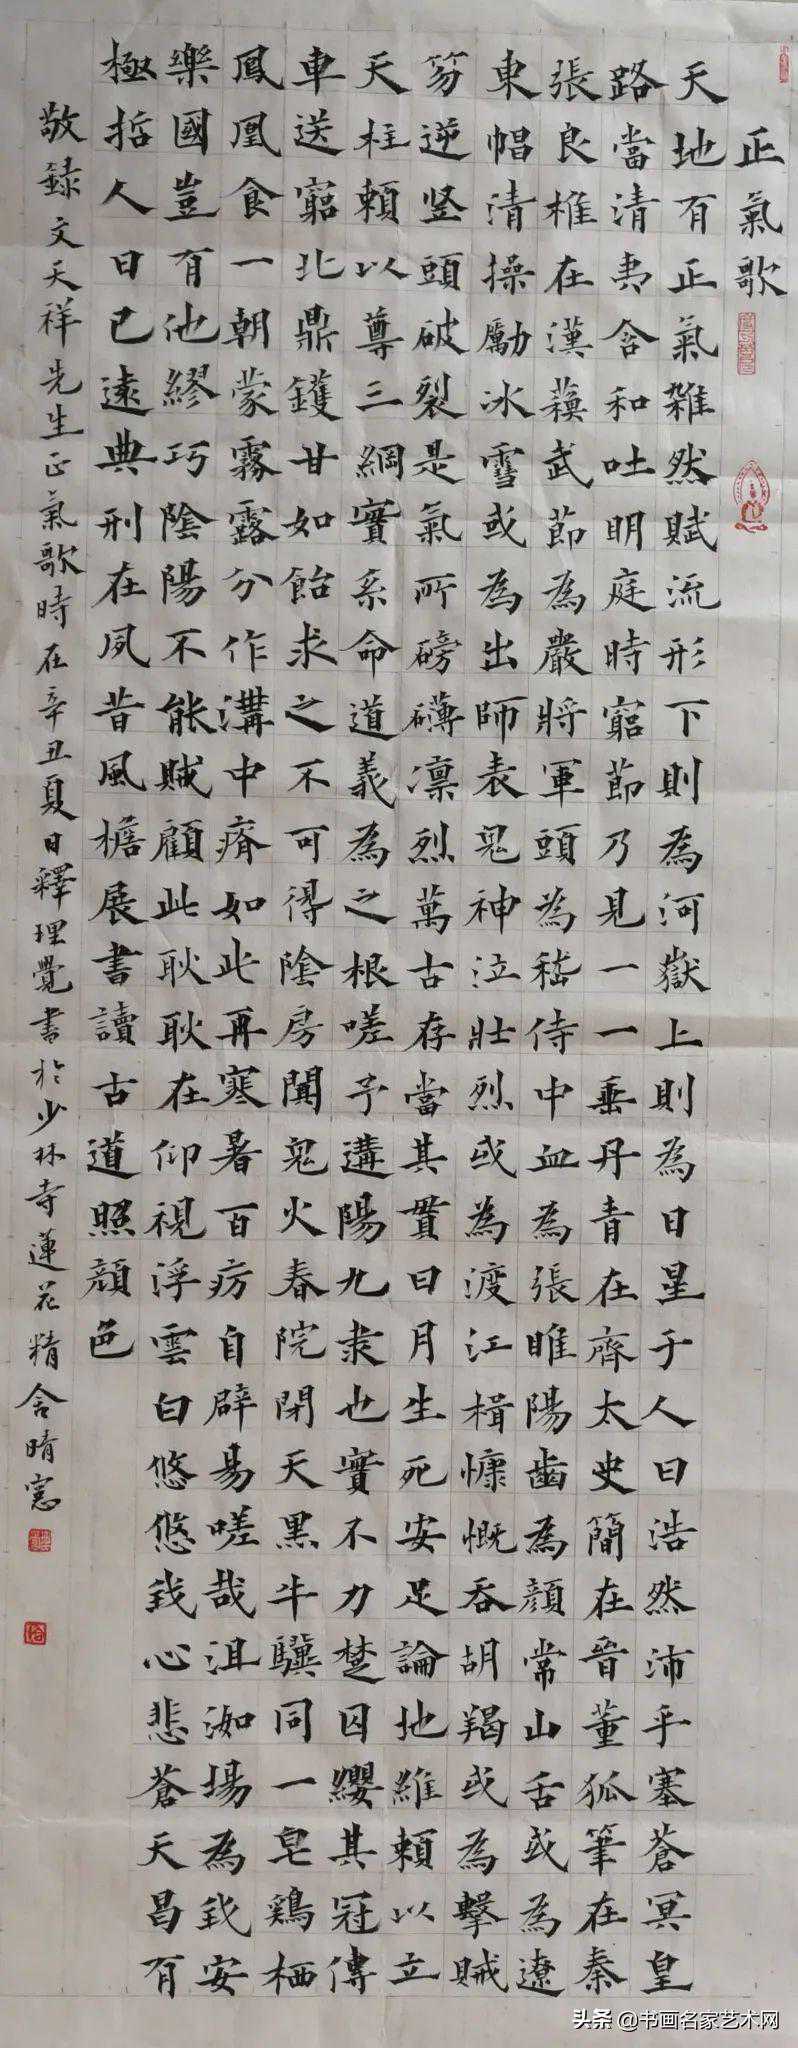 正氣歌
天地有正氣雜然賦流形下則為河嶽上則為日星于人曰浩然沛乎塞蒼冥皇
路當清夷含和吐明庭時窮節乃見一一垂丹青在齊太史簡在晉董狐筆在秦
張良椎在漢蘇武節為嚴將軍頭為嵇侍中血為張睢陽齒為顏常山舌或為遼
東帽清操勵冰雪或為出師表鬼神泣壯烈或為渡江楫慷慨吞胡羯或為擊賊
笏逆竖頭破裂是氣所磅礴凜烈萬古存當其貫日月生死安足論地維賴以立
天柱賴以尊三綱實系命道義為之根嗟予遘陽九隶也實不力楚囚纓其冠傳
車送窮北鼎鑊甘如飴求之不可得陰房闃鬼火春院閉天黑牛驥同一皂鷄栖
鳳凰食一朝蒙霧露分作溝中瘠如此再寒暑百疠自辟易嗟哉沮洳場為我安
樂國豈有他繆巧陰陽不能賊顧此耿耿在仰視浮雲白悠悠我心悲蒼天曷有
極哲人日已遠典刑在夙昔風檐展書讀古道照顏色
敬録文天祥先生正氣歌時在辛丑夏日釋理覺書於少林寺蓮花精舍晴窓
头条 @书画名家艺术网